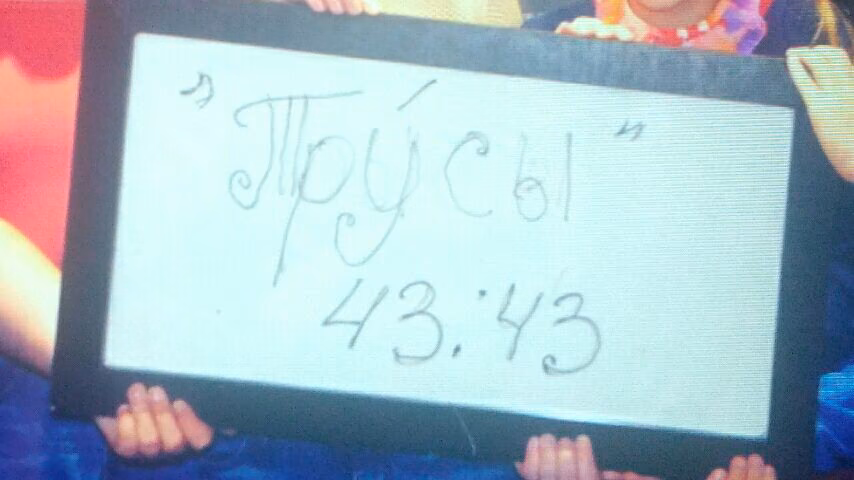 "Трýсы"
43:43